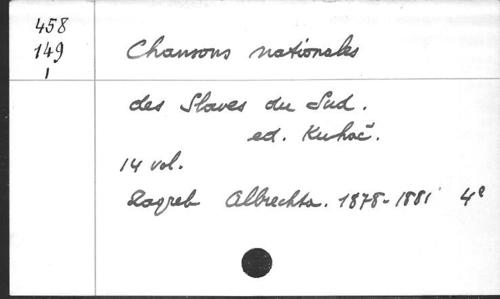 458
149
1
Chansons nationales
des Slaves du Sud.
ed. Kuhač.
14 vol.
Zagreb Albrechta. 1878-1881 4°